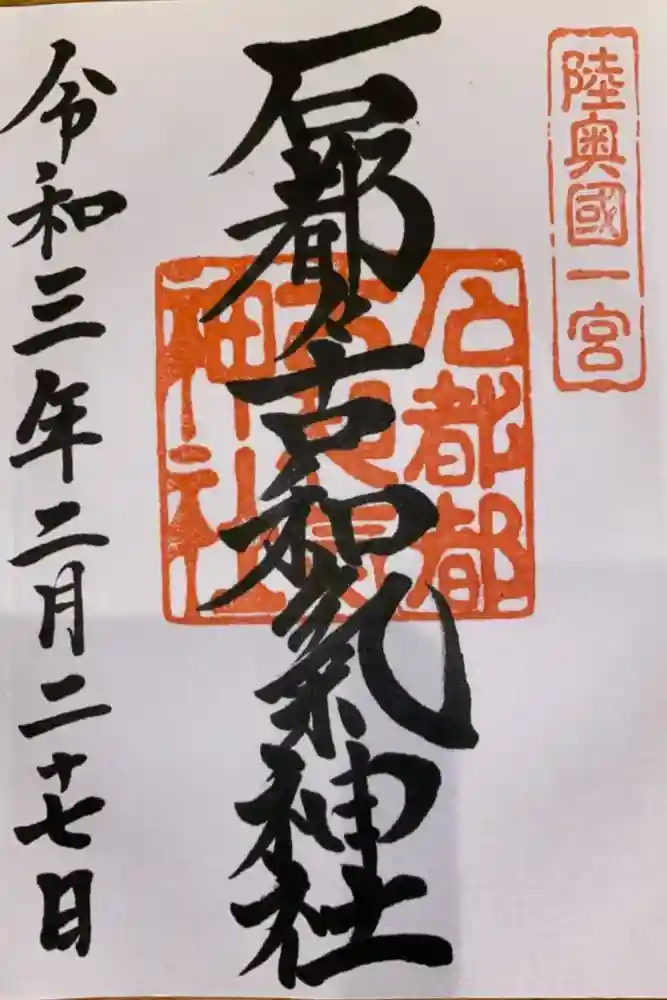 陸奥國一宮
石都々古和氣神社
石都都
神社
令和三年二月二十七日